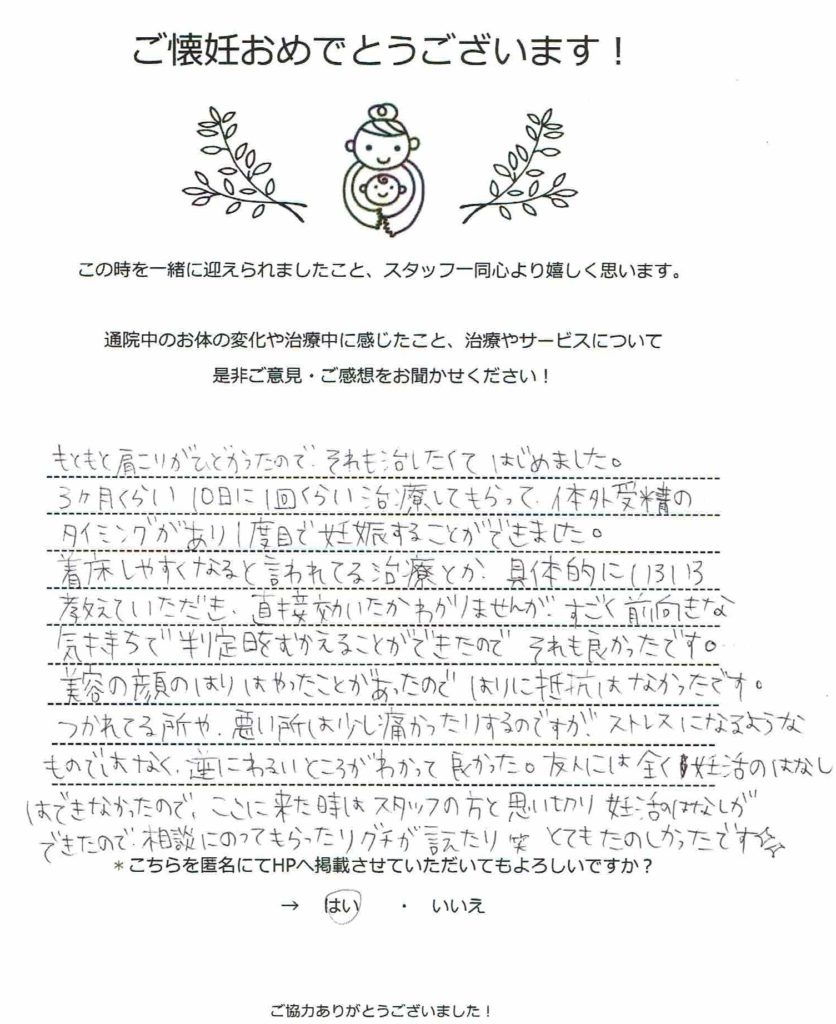 ご懐妊おめでとうございます！
この時を一緒に迎えられましたこと、スタッフ一同心より嬉しく思います。
通院中のお体の変化や治療中に感じたこと、治療やサービスについて
是非ご意見・ご感想をお聞かせください！
もともと肩こりがひどかったので、それも治したくて はじめました。
3ヶ月くらい 10日に1回くらい 治療してもらって、体外受精の
タイミングがあり 1度目で 妊娠することができました。
着床しやすくなると言われてる治療とか、具体的にいろいろ
教えていただき、直接効いたかわかりませんが、すごく前向きな
気持ちで 判定日をむかえることができたので それも良かったです。
美容の顔のはりはやったことがあったので はりに抵抗はなかったです。
つかれてる所や、悪い所は少し痛かったりするのですが、ストレスになるような
ものではなく、逆にわるいところがわかって 良かった。友人には全く妊活のはなし
はできなかったので、ここに来た時は スタッフの方と思い切り 妊活のはなしが
できたので、相談にのってもらったり グチが言えたり 笑 とてもたのしかったです☆☆
＊こちらを匿名にてHPへ掲載させていただいてもよろしいですか？
→ はい ・ いいえ
ご協力ありがとうございました！